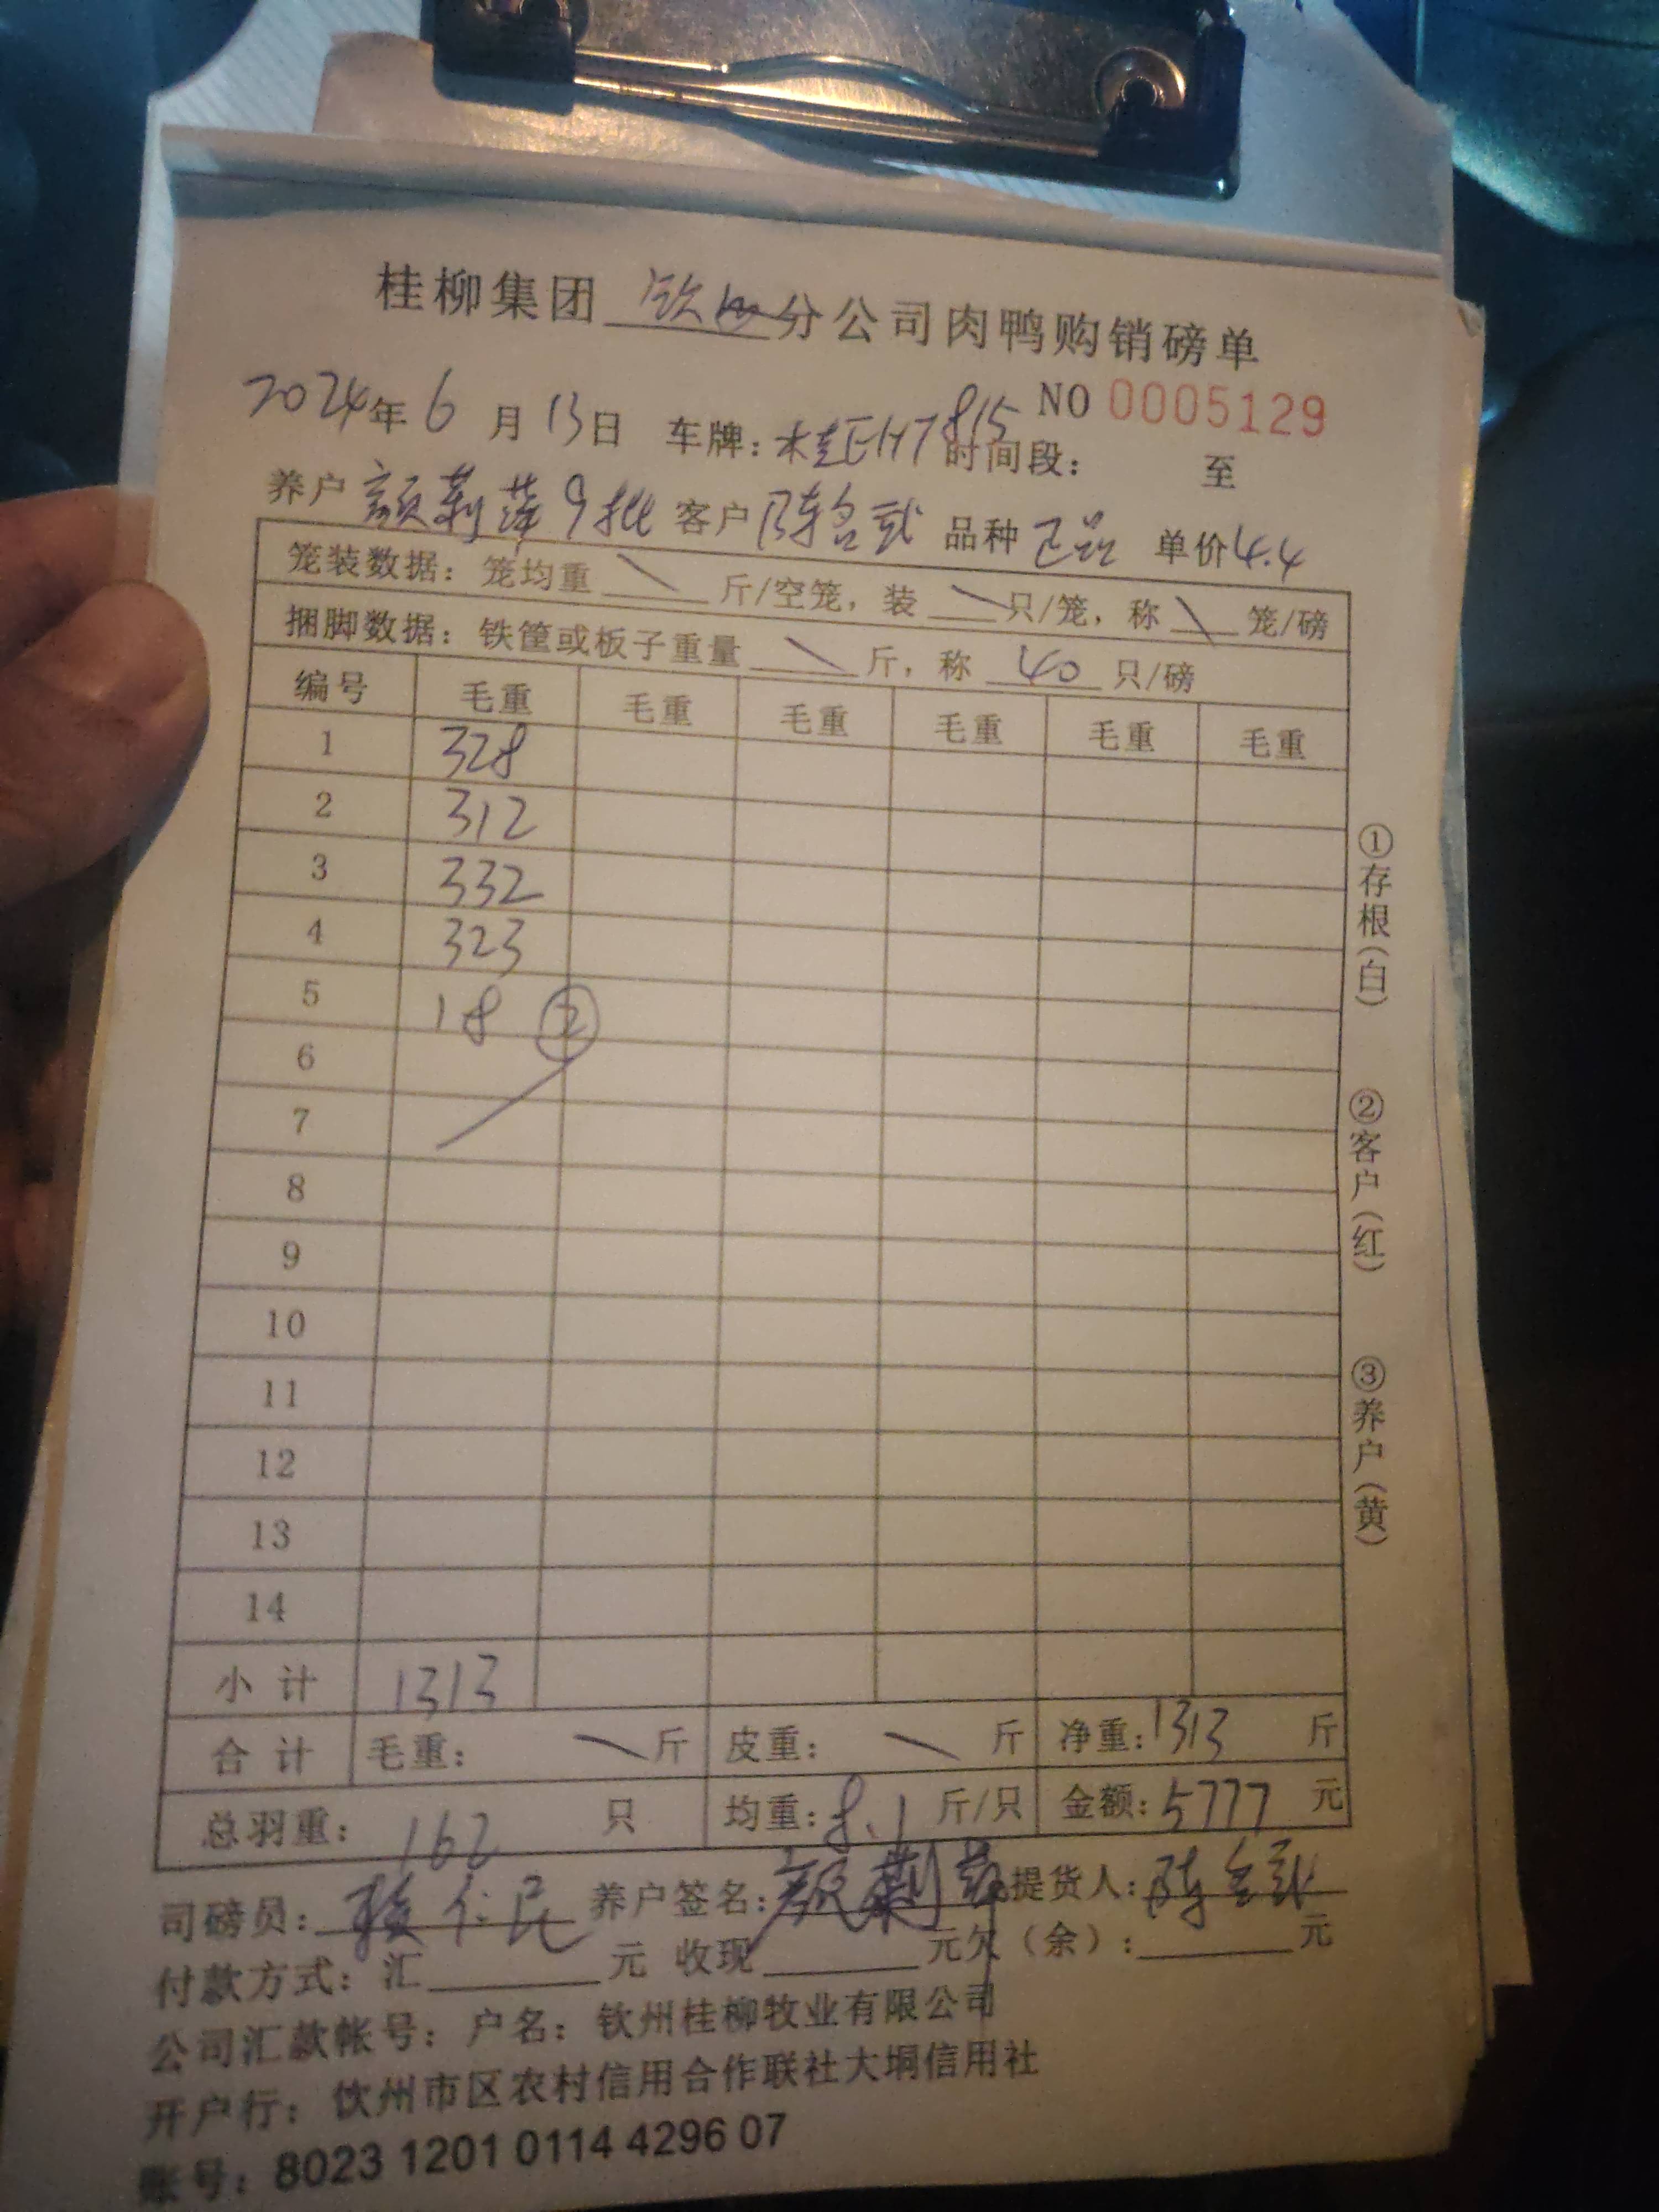 桂柳集团 钦州 分公司肉鸭购销磅单
2024年 6 月 13日 车牌：桂EH7815 NO 0005129
时间段： 至
养户 颜莉萍 9批 客户 陈名武 品种 正品 单价 4.4
笼装数据：笼均重 \ 斤/空笼，装 \ 只/笼，称 \ 笼/磅
捆脚数据：铁筐或板子重量 \ 斤，称 40 只/磅
编号 毛重 毛重 毛重 毛重 毛重 毛重
1 328
2 312
3 332
4 323
5 18 ②
6
7
8
9
10
11
12
13
14
小计 1313
合计 毛重： \ 斤 皮重： \ 斤 净重：1313 斤
总羽重： 162 只 均重：8.1 斤/只 金额：5777 元
司磅员： 仁民 养户签名：颜莉萍 提货人：陈名武
付款方式：汇 元 收现 元欠（余）： 元
公司汇款帐号：户名：钦州桂柳牧业有限公司
开户行：钦州市区农村信用合作联社大垌信用社
账号：8023 1201 0114 4296 07
①存根（白）
②客户（红）
③养户（黄）